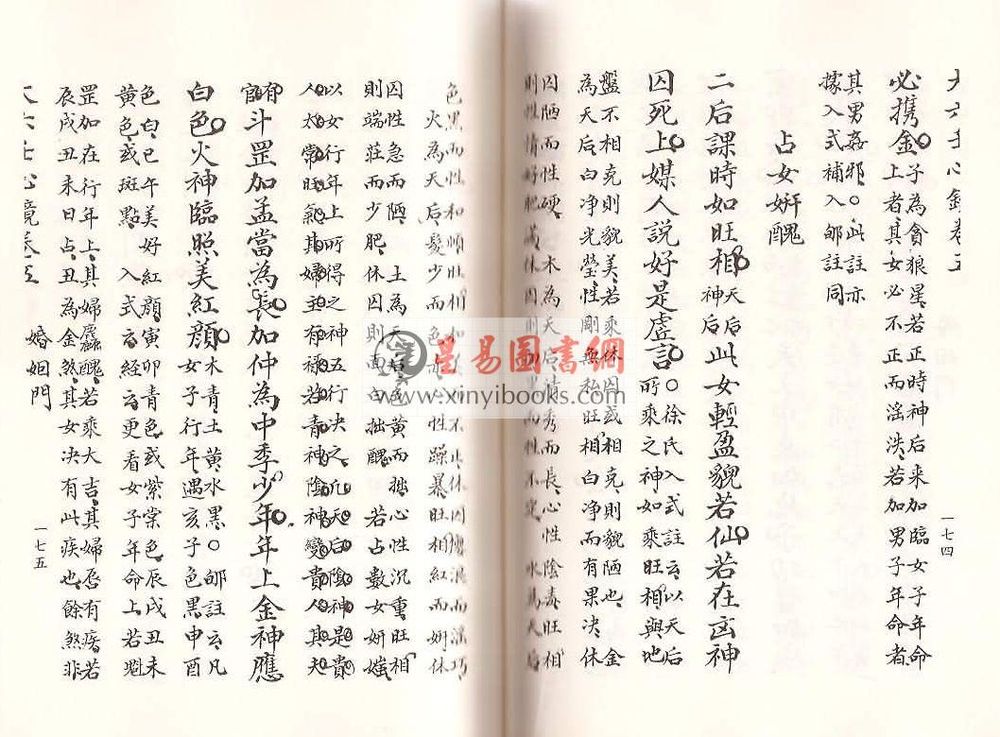 必攜金上者其女必不正而淫泆若加男子年命者
子為貪狼星若正時神后来加臨女子年命
其男姦邪○此註亦
據入式補入邮註同
占女妍醜
二后課時如旺相神后天后此女輕盈貌若仙若在囟神
囚死上媒人説好是虛言○徐氏入式註云以天后
所乘之神如乘旺相與地
盤不相克則貌美若乘休囚或相克則貌陋也金
為天后白净光瑩性剛無私旺相白净而有果决休
囚陋而性硬木為天后清秀而長心性陰毒旺相
則性情好
一七四
色黑而性和順旺相
火為天后髮少而色
性躁暴旺相紅而妍休
囚性急而陋土為天后色黄而拙心性沉重旺相
則端莊而少肥休囚則面白拙醜若占數女妍媸
以女行年上所得之神五行决之凡天后陰神是貴
人太常旺氣其婦主有禄若青神陰神變貴人其夫
有官
斗罡加孟當為長加仲為中季少年年上金神應
白色火神臨照美紅顔木青土黄水黑○邮註云凡
女子行年遇亥子色黑申酉
色白巳午美好紅顔寅卯青色或紫棠色辰戌丑未
黄色或斑點入式云経云更看女子年命上若魁
罡加在行年上其婦麤醜若乘大吉其婦唇有痣若
辰戌丑未日占丑為金煞其女决有此疾也餘煞非
婚姻門
一七五
星易圖書網
www.xinyibooks.com